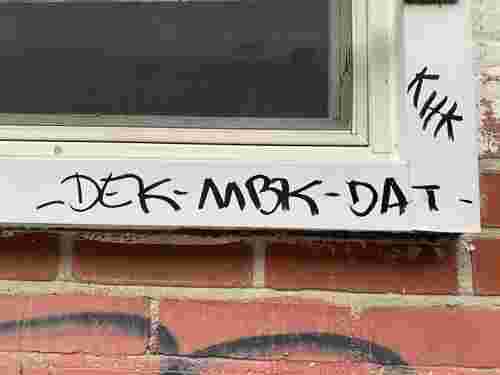 KHK
-DEK-MBK-DAT-